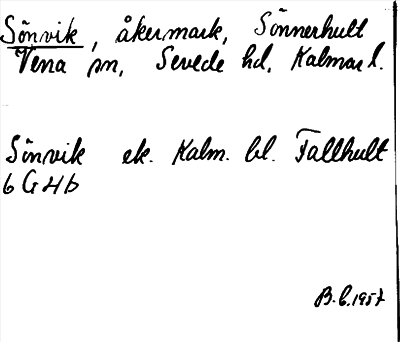 Sönvik, åkermark, Sönnerhult
Vena sn, Sevede hd, Kalmar l.
Sönvik ek. Kalm. bl. Fallhult
6 G 4 b
B. L. 1957